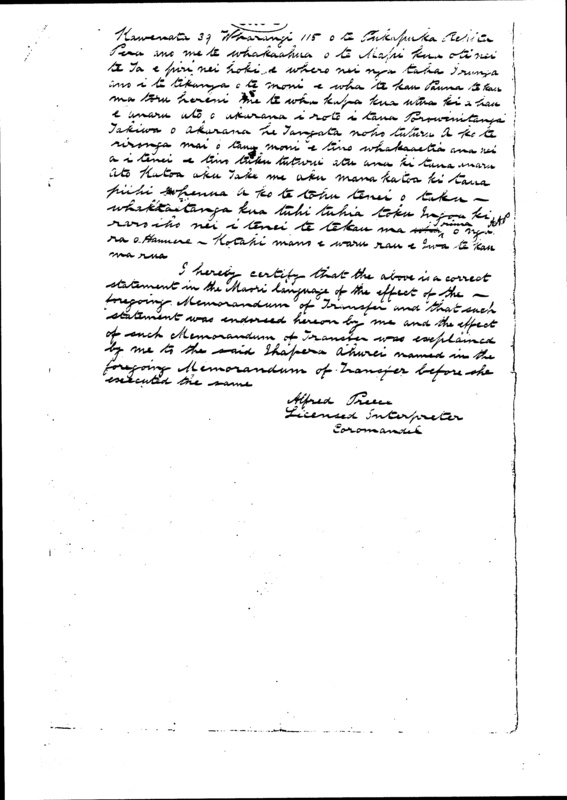 Kawenata 39 Wharangi 115 o te Pukapuka Rehita
Pera ano me te whakaahua o te Mapi kua oti nei
te Ta e piri nei hoki, e whero nei nga taha i runga
ano i te tikanga o te moni e wha te kau Pauna te kau
ma toru hereni me te wha kapa kua utua ki a hau
e
o Akarana i roto i tana Porowinitanga
Takiwa o Akarana he Tangata noho tuturu A ko te
rironga mai o taua moni e tino whakaaetia ana nei
a i tenei e tino tuku tuturu atu ana ki taua
Ato Katoa aku Take me aku mana katoa ki taua
piihi whenua A ko te tohu tenei o taku -
whakaaetanga kua tuhi tuhia toku Ingoa ki
raro iho nei i tenei te tekau ma rima o nga
ra o Hanuere - Kotahi mano e waru rau e Iwa te kau
ma rua
I hereby certify that the above is a correct
statement in the Maori language of the effect of the -
foregoing Memorandum of Transfer and that such
statement was endorsed hereon by me and the effect
of such Memorandum of Transfer was explained
by me to the said Ihapera Ahurei named in the
foregoing Memorandum of Transfer before she
executed the same
Alfred Preece
Licensed Interpreter
Coromandel